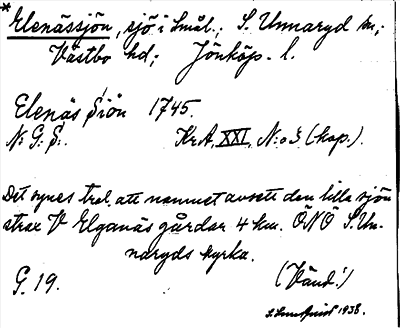 *Elenässjön, sjö i Smål.; S. Unnaryd sn;
Västbo hd; Jönköp. l.
Elenäs Siön 1745.
N: G: S:. Kr.A, XXI, N:o 3 (kop.).
Det synes trol. att namnet avsett den lilla sjön
strax V Elganäs gårdar 4 km. ÖNÖ S. Un-
naryds kyrka.
G. 19. (Vänd!)
1938.